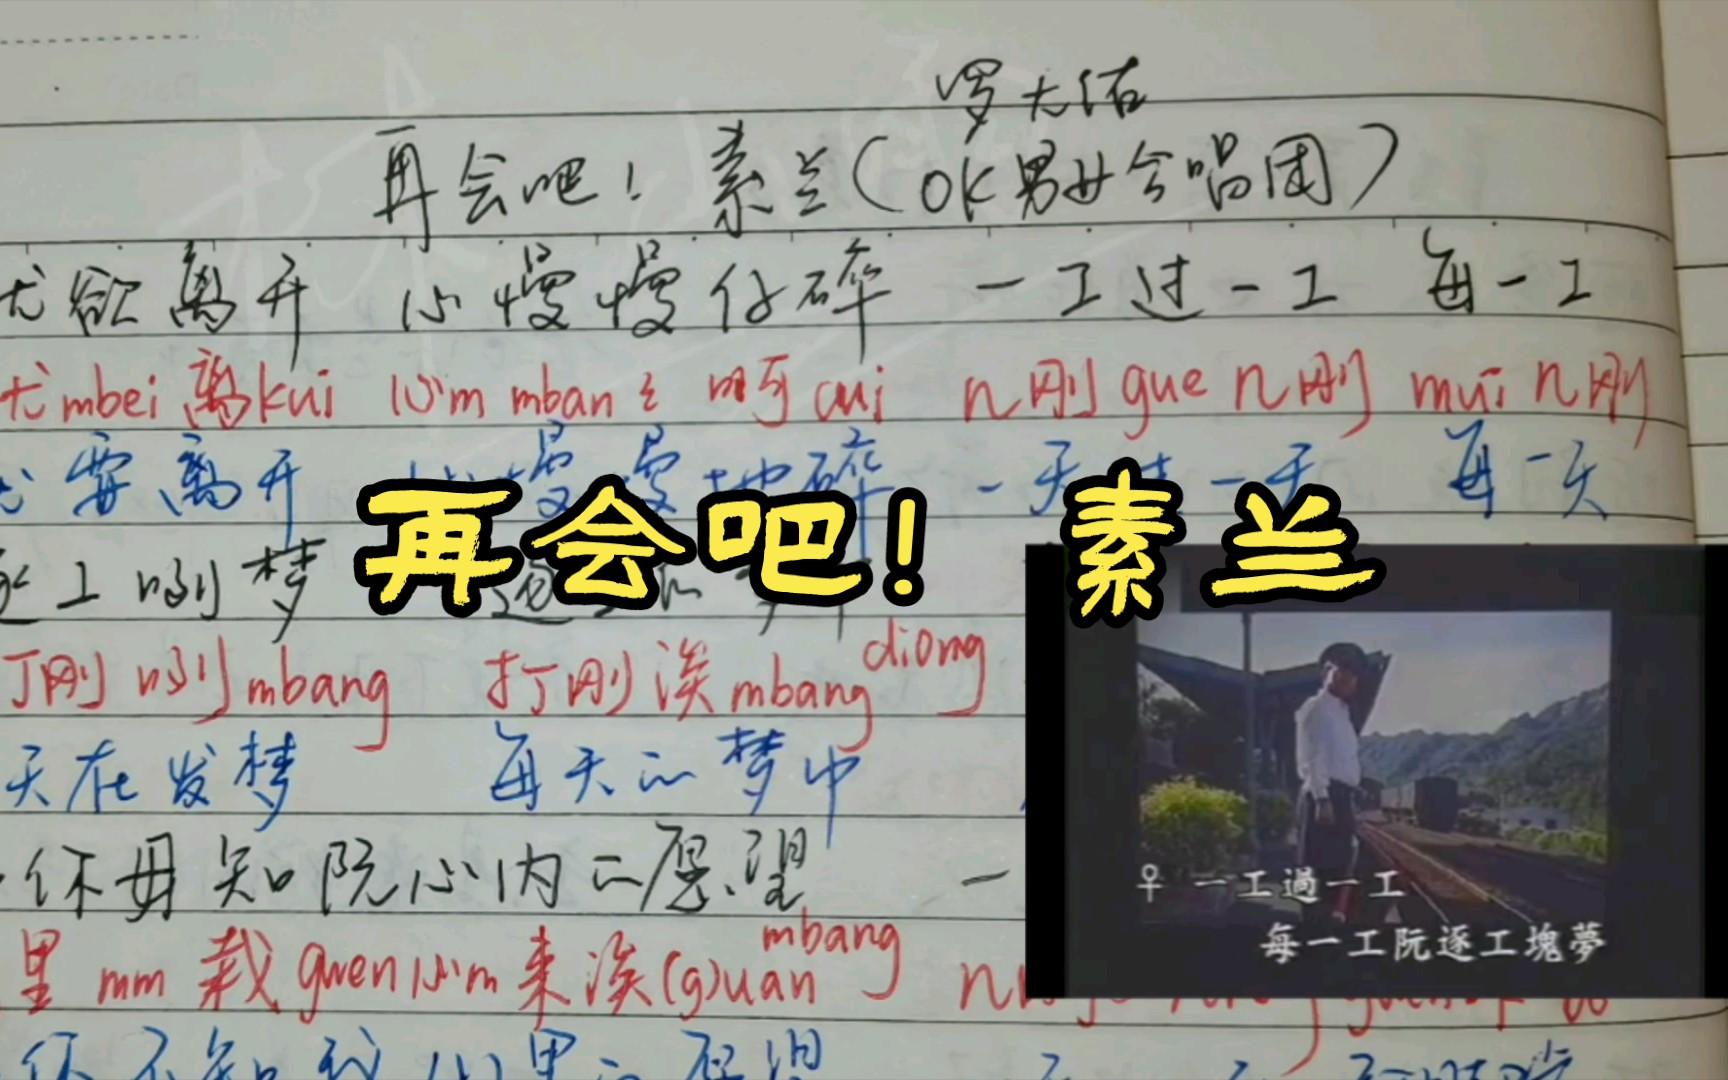 罗大佑
再会吧！素兰（OK男女合唱团）
欲离开 心慢慢仔碎 一工过一工 每一工
mbei 离kui 心m mban 呵cui n刚gue n刚 mui n刚
要离开 慢慢地碎 一天 一天 每一天
再会吧！ 素兰
工咧梦
刚咧mbang 打刚涘mbang diong
天在发梦 每天的梦中
你毋知阮心内的愿望 一
里 mm 栽guen心m来涘(g)uan mbang
♀ 一工過一工
每一工阮逐工塊夢
你不知我心里的愿望